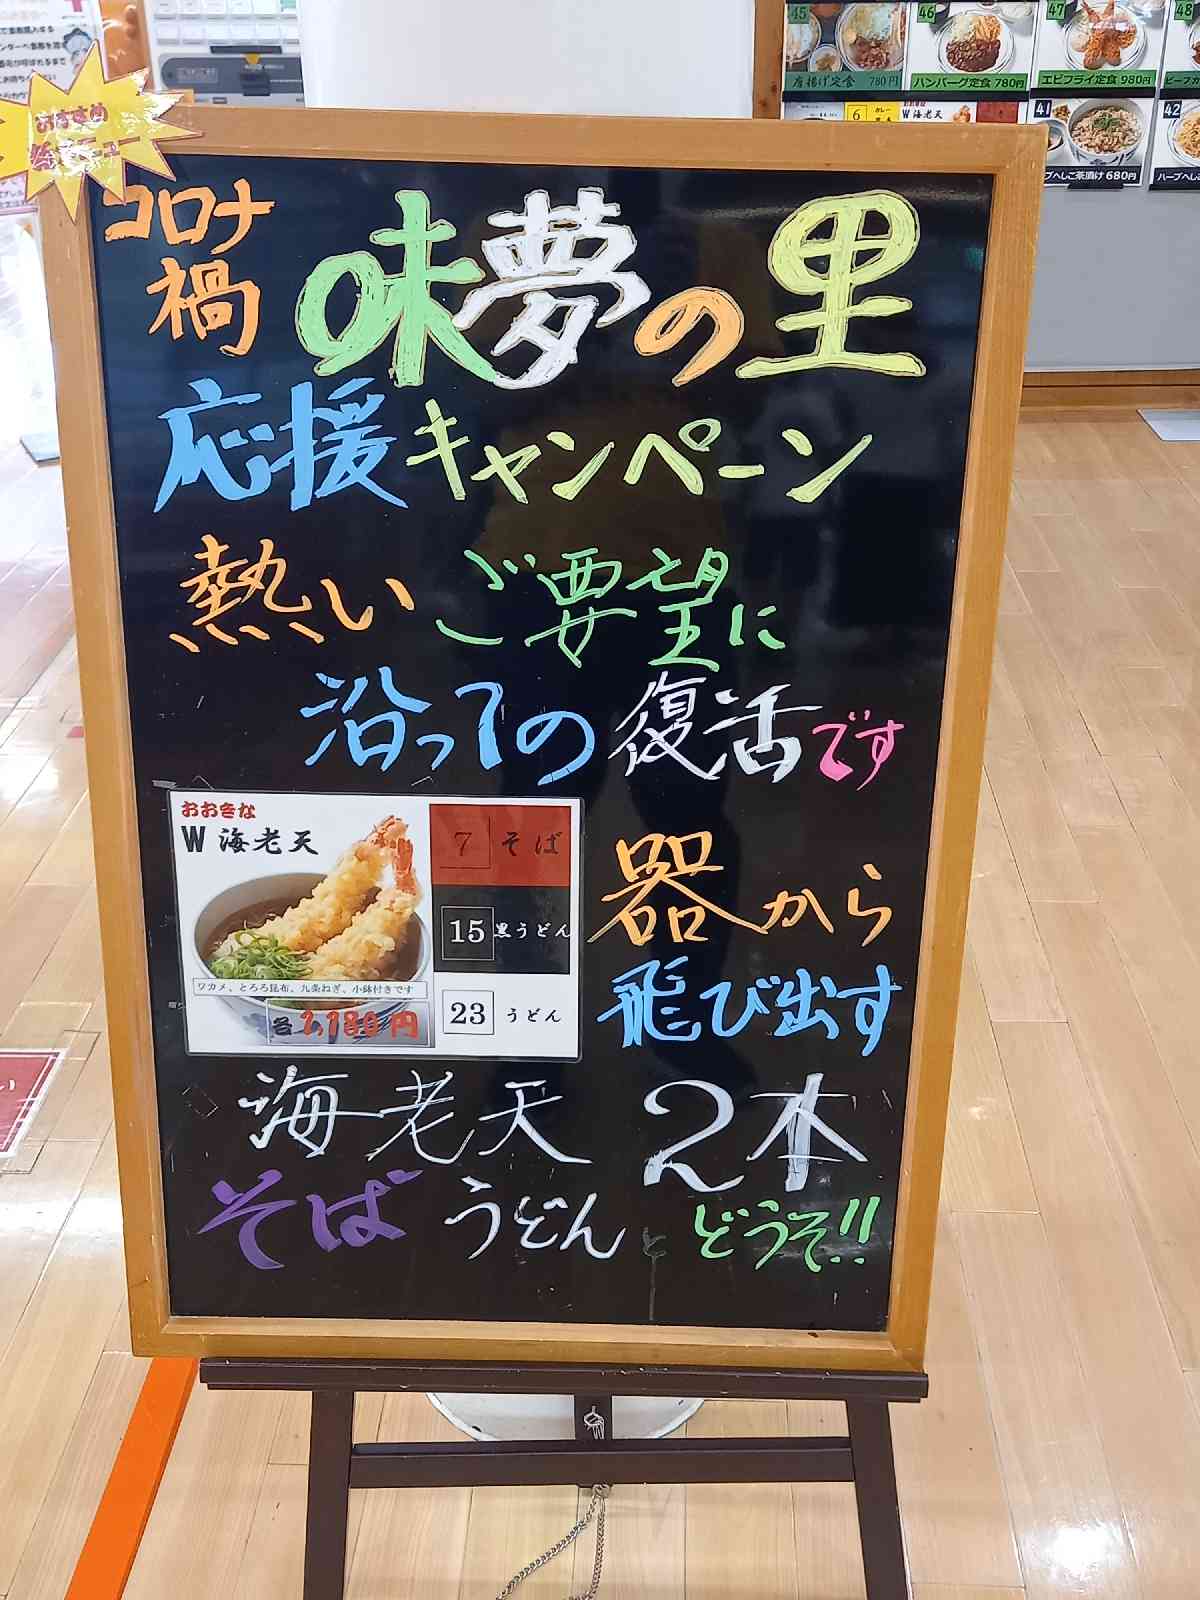 おすすめ
コロナ
禍
味夢の里
応援キャンペーン
熱いご要望に
沿っての復活です
おおきな
W 海老天
ワカメ、とろろ昆布、九条ねぎ、小鉢付きです
各1,180円
7 そば
15 黒うどん
23 うどん
器から
飛び出す
海老天 2本
そば うどん と どうぞ!!
45
唐揚げ定食 780円
46
ハンバーグ定食 780円
47
エビフライ定食 980円
48
6 カレー
W 海老天
41
プへしこ茶漬け 680円
42
ハーブへし